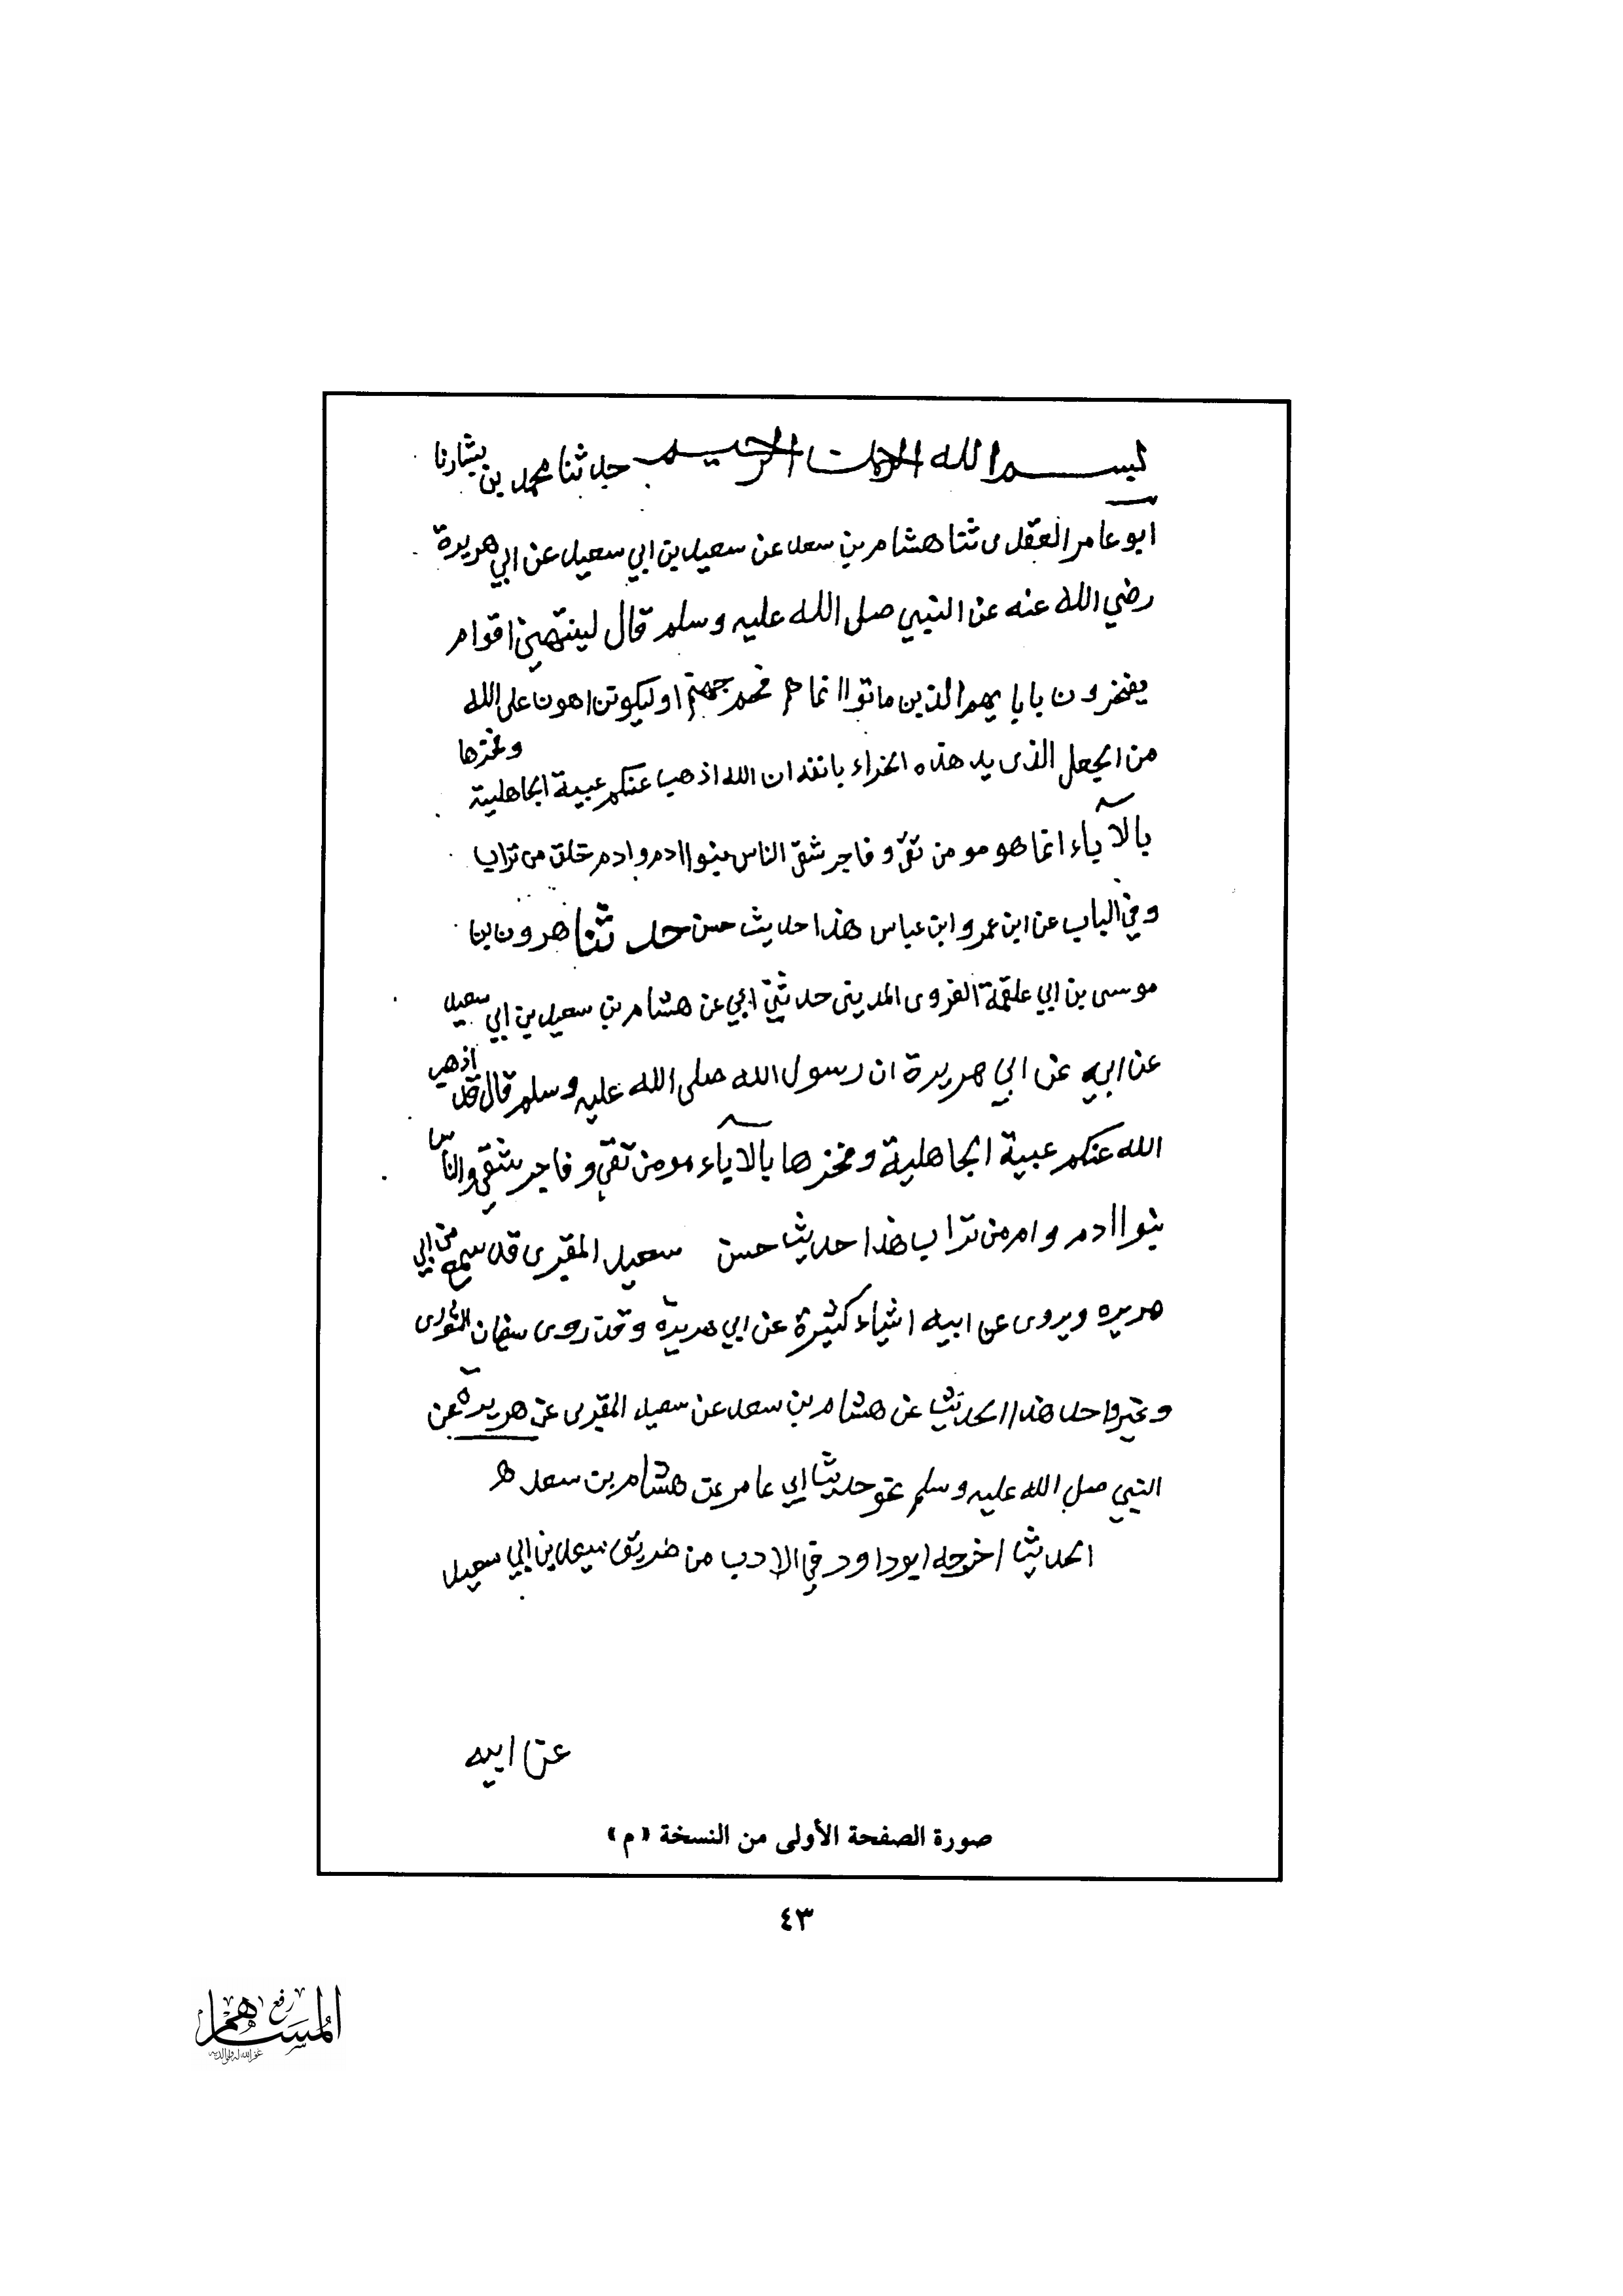 بسم الله الرحمن الرحيم حدثنا محمد بن بشارنا
ابو عامر العقدى ثنا هشام بن سعد عن سعيد بن ابي سعيد عن ابي هريرة
رضي الله عنه عن النبي صلى الله عليه وسلم قال لينتهين اقوام
يفخرون بابايهم الذين ماتوا انما هم فحم جهنم او ليكونن اهون على الله
من الجعل الذى يدهده الخراء بانفه ان الله اذهب عنكم عبية الجاهلية وفخرها
بالآباء انما هو مومن تقي و فاجر شقي الناس بنوا ادم وادم خلق من تراب
وفي الباب عن ابن عمر و ابن عباس هذا حديث حسن حدثنا هرون بنا
موسى بن ابي علقمة الفروى المدينى حدثني ابي عن هشام بن سعيد بن ابي سعيد
عن ابيه عن ابي هريرة ان رسول الله صلى الله عليه وسلم قال قد اذهب
الله عنكم عبية الجاهلية وفخرها بالآباء مومن تقي و فاجر شقي والناس
بنوا ادم وادم من تراب هذا حديث حسن سعيد المقبرى قد سمع من ابي
هريره ويروى عن ابيه اشياء كثيرة عن ابي هريرة وقد روى سفيان الثورى
وغير واحد هذا الحديث عن هشام بن سعد عن سعيد المقبرى عن هريرة عن
النبي صلى الله عليه وسلم نحو حديث ابي عامر عن هشام بن سعد ه
الحديث اخرجه ابوداود في الادب من طريق سعيد بن ابي سعيد
عن ابيه
صورة الصفحة الأولى من النسخة «م»
٤٣
المساهم
رفع
غفر الله له ولوالديه